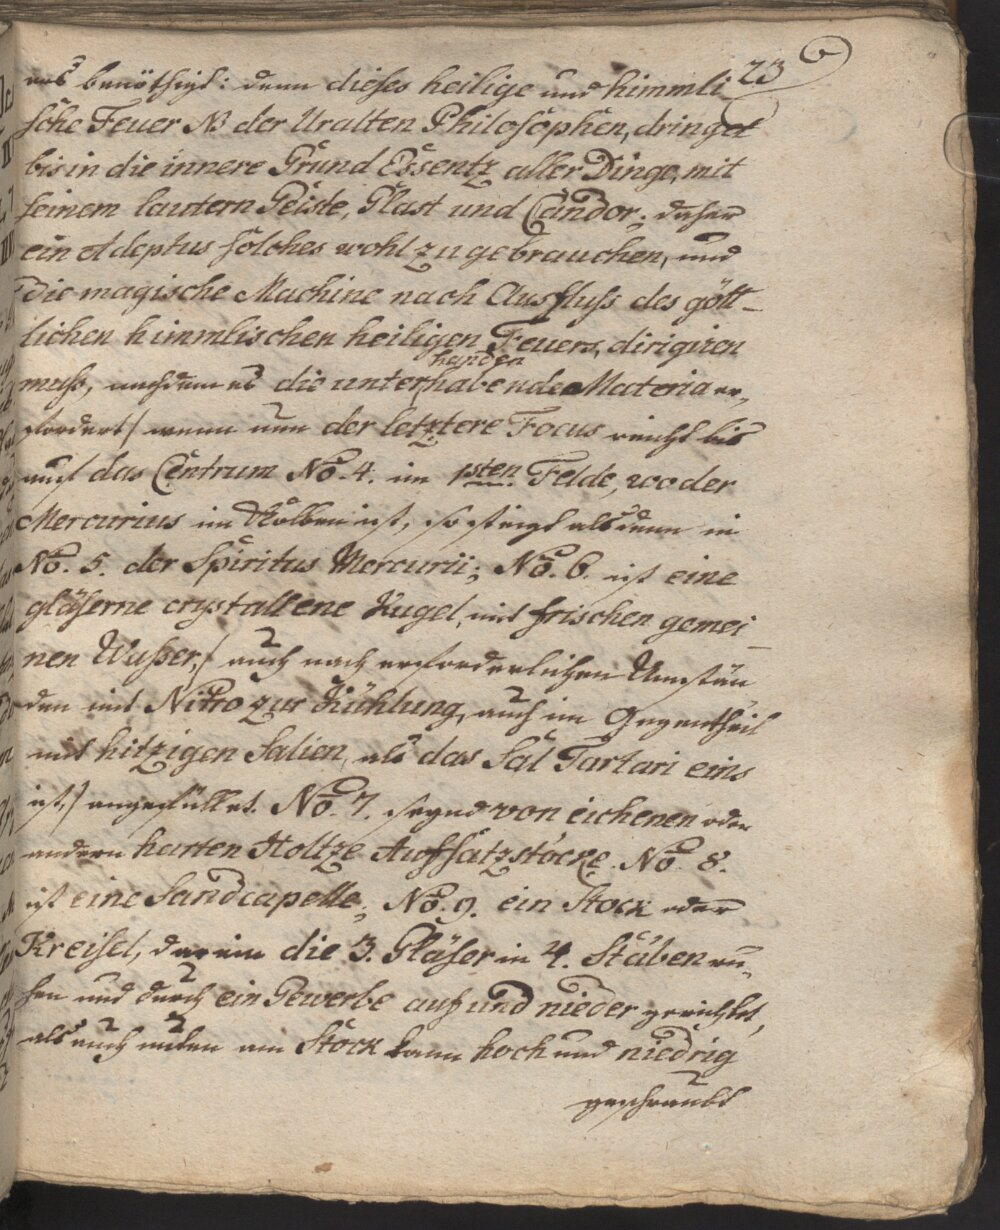 23
es benöthigt: denn dieses heilige und himmli
sche Feuer NB der Uralten Philosophen, dringet
bis in die innere Grund Essentz aller Dinge, mit
seinem lautern Geiste, Glast und Candor; daher
ein Adeptus solches wohl zu gebrauchen, und
die magische Machine nach Ausfluss des gött-
lichen himmlischen heiligen Feuers, dirigiren
handen
muss, nachdem es die unterhabende Materia er-
fordert/ wenn nun der letztere Focus reicht bis
auf das Centrum No. 4. im 1sten Felde, wo der
Mercurius im Kolben ist, so steigt alsdenn in
No. 5. der Spiritus Mercurii; No. 6. ist eine
gläserne crystallene Kugel, mit frischen gemei-
nen Wasser,/ auch nach erforderlichen Umstän
den mit Nitro zur Kühlung, auch im Gegentheil
mit hitzigen Salien, als das Sal Tartari eins
ist,/ angefüllet. No. 7. seynd von eichenen oder
andern harten Holtze Auffsatzstöcke. No. 8.
ist eine Sandcapelle; No. 9. ein Stock oder
Kreisel, darein die 3. Gläser in 4. Stäben ru-
hen und durch ein Gewerbe auf und nieder gerichtet,
als auch unten am Stock kann hoch und niedrig
geschraubt